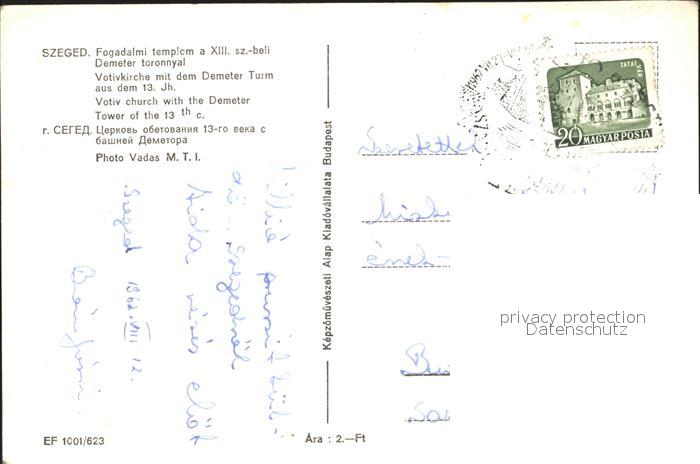 SZEGED. Fogadalmi templom a XIII. sz.-beli
Demeter toronnyal
Votivkirche mit dem Demeter Turm
aus dem 13. Jh.
Votiv church with the Demeter
Tower of the 13 th c.
г. СЕГЕД. Церковь обетования 13-го века с
башней Деметора
Photo Vadas M. T. I.
Millió puszit kül-
döm Szegedről
Aida nézés előtt
Szeged 1962. VIII 12.
EF 1001/623
Képzőművészeti Alap Kiadóvállalata Budapest
Ára : 2.—Ft
TATAI VÁR
20 MAGYAR POSTA
ének-
privacy protection
Datenschutz